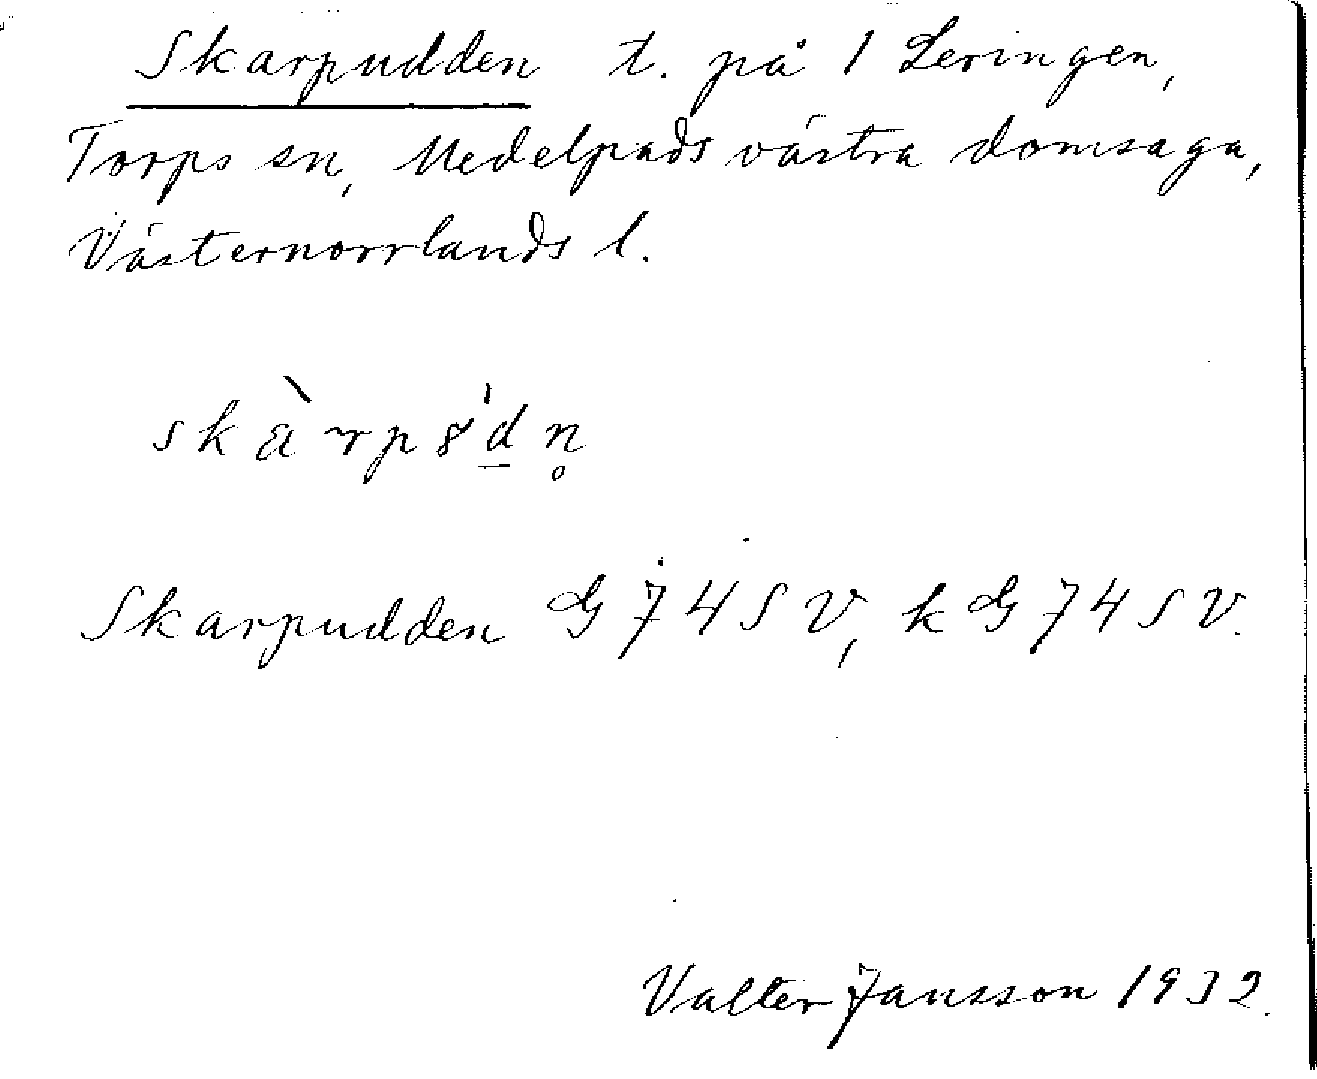 Skarpudden t. på 1 Leringen,
Torps sn, Medelpads västra domsaga,
Västernorrlands l.
Skarpudden G 74 SV, k G 74 SV.
Valter Jansson 1932.